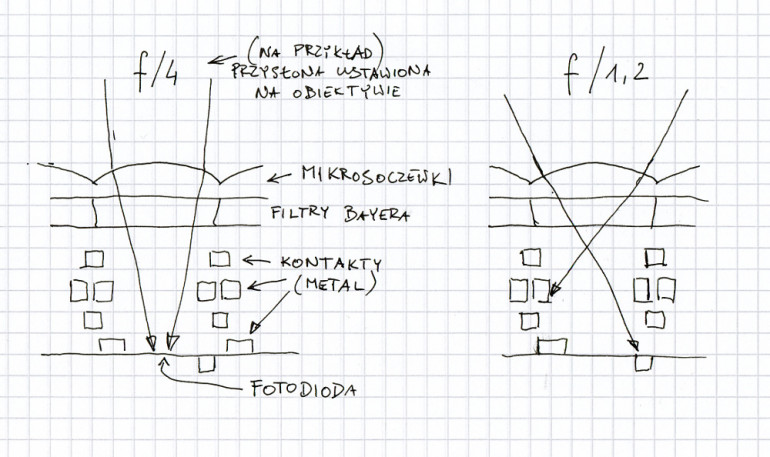 f/4
(NA PRZYKŁAD)
PRZYSŁONA USTAWIONA
NA OBIEKTYWIE
f/1,2
MIKROSOCZEWKI
FILTRY BAYERA
KONTAKTY
(METAL)
FOTODIODA